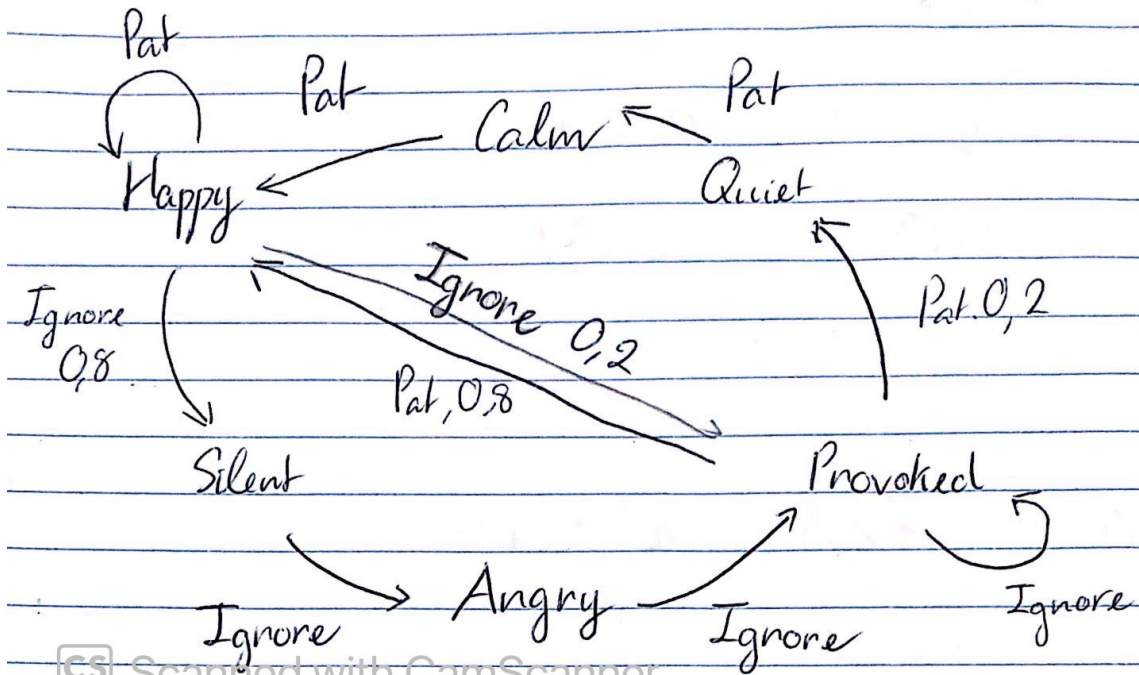 Pat
Pat
Pat
Calm
Happy
Quiet
Ignore 0,2
Ignore
0,8
Pat. 0,2
Pat, 0,8
Silent
Provoked
Angry
Ignore
Ignore
Ignore
CS Scanned with CamScanner